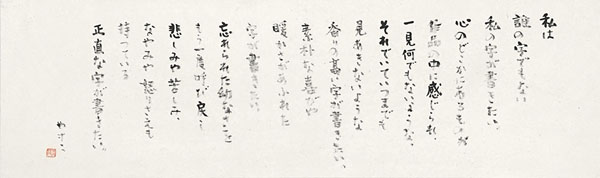 私は
誰の字でもない
私の字が書きたい。
心のどこかにあるものが
作品の中に感じられ、
一見何でもないような、
それでいていつまでも
見あきないような
香りの高い字が書きたい。
素朴な喜びや
暖かさがあふれた
字が書きたい
忘れられた幼なさを
もう一度呼び戻し
悲しみや苦しみ、
なやみや怒りさえも
持っている
正直な字が書きたい。